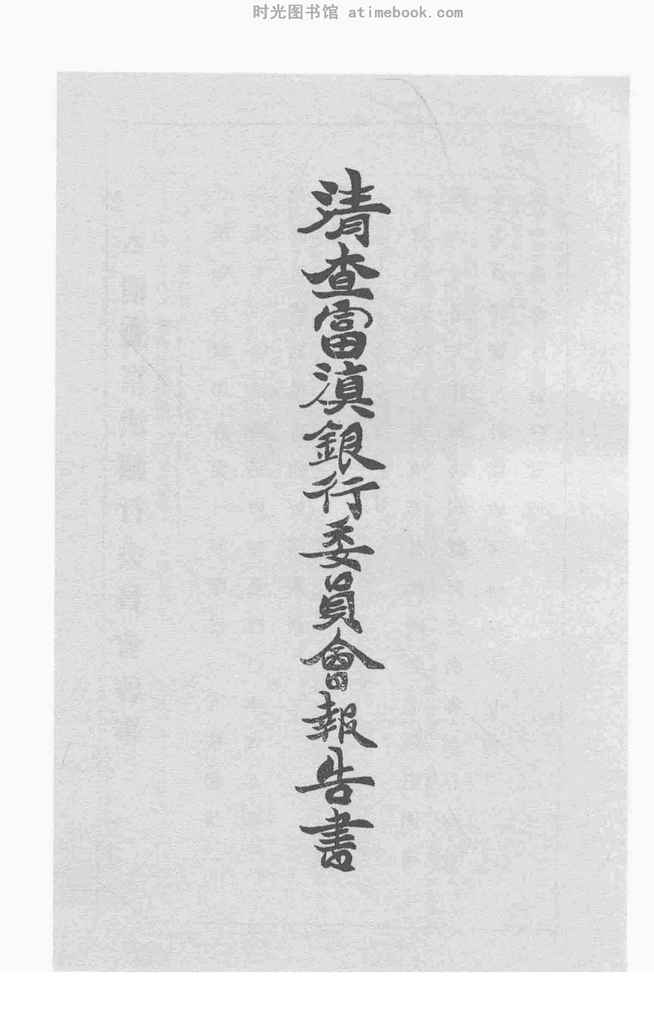 时光图书馆 atimebook.com
清查富滇銀行委員會報告書